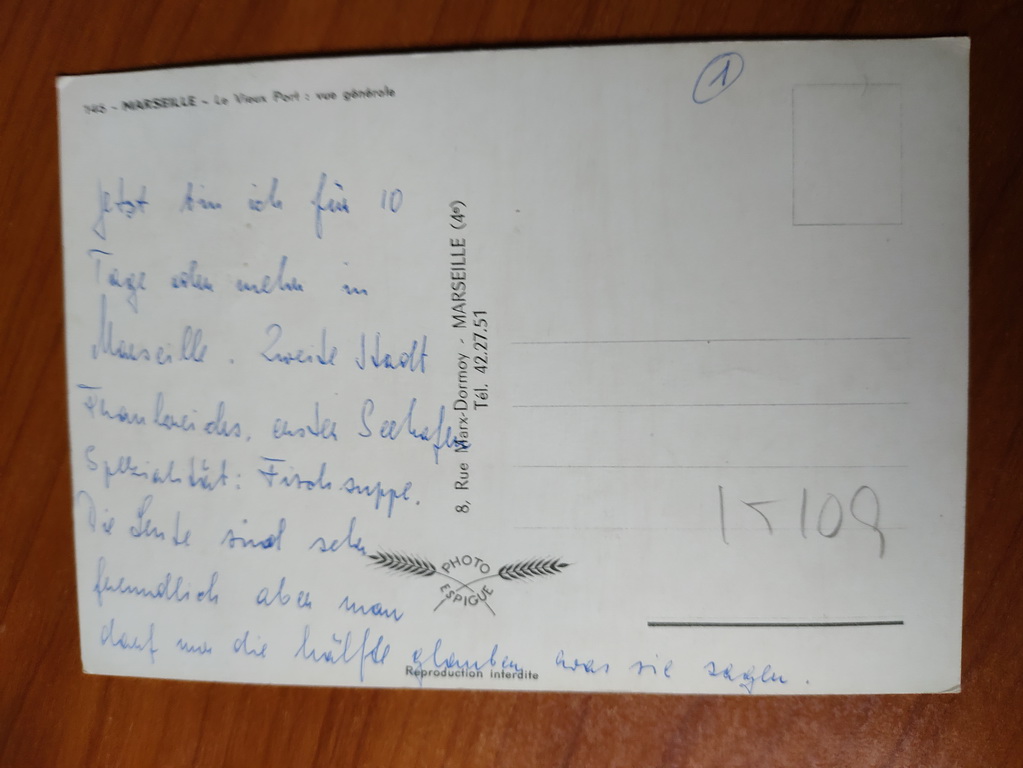 145 - MARSEILLE - Le Vieux Port : vue générale
1
Jetzt bin ich für 10
Tage oder mehr in
Marseille. Zweite Stadt
Frankreichs, erster Seehafen
Spezialität: Fischsuppe.
Die Leute sind sehr
freundlich aber man
darf nur die hälfte glauben was sie sagen.
8, Rue Marx-Dormoy - MARSEILLE (4e)
Tél. 42.27.51
PHOTO
ESPIGUE
Reproduction interdite
109